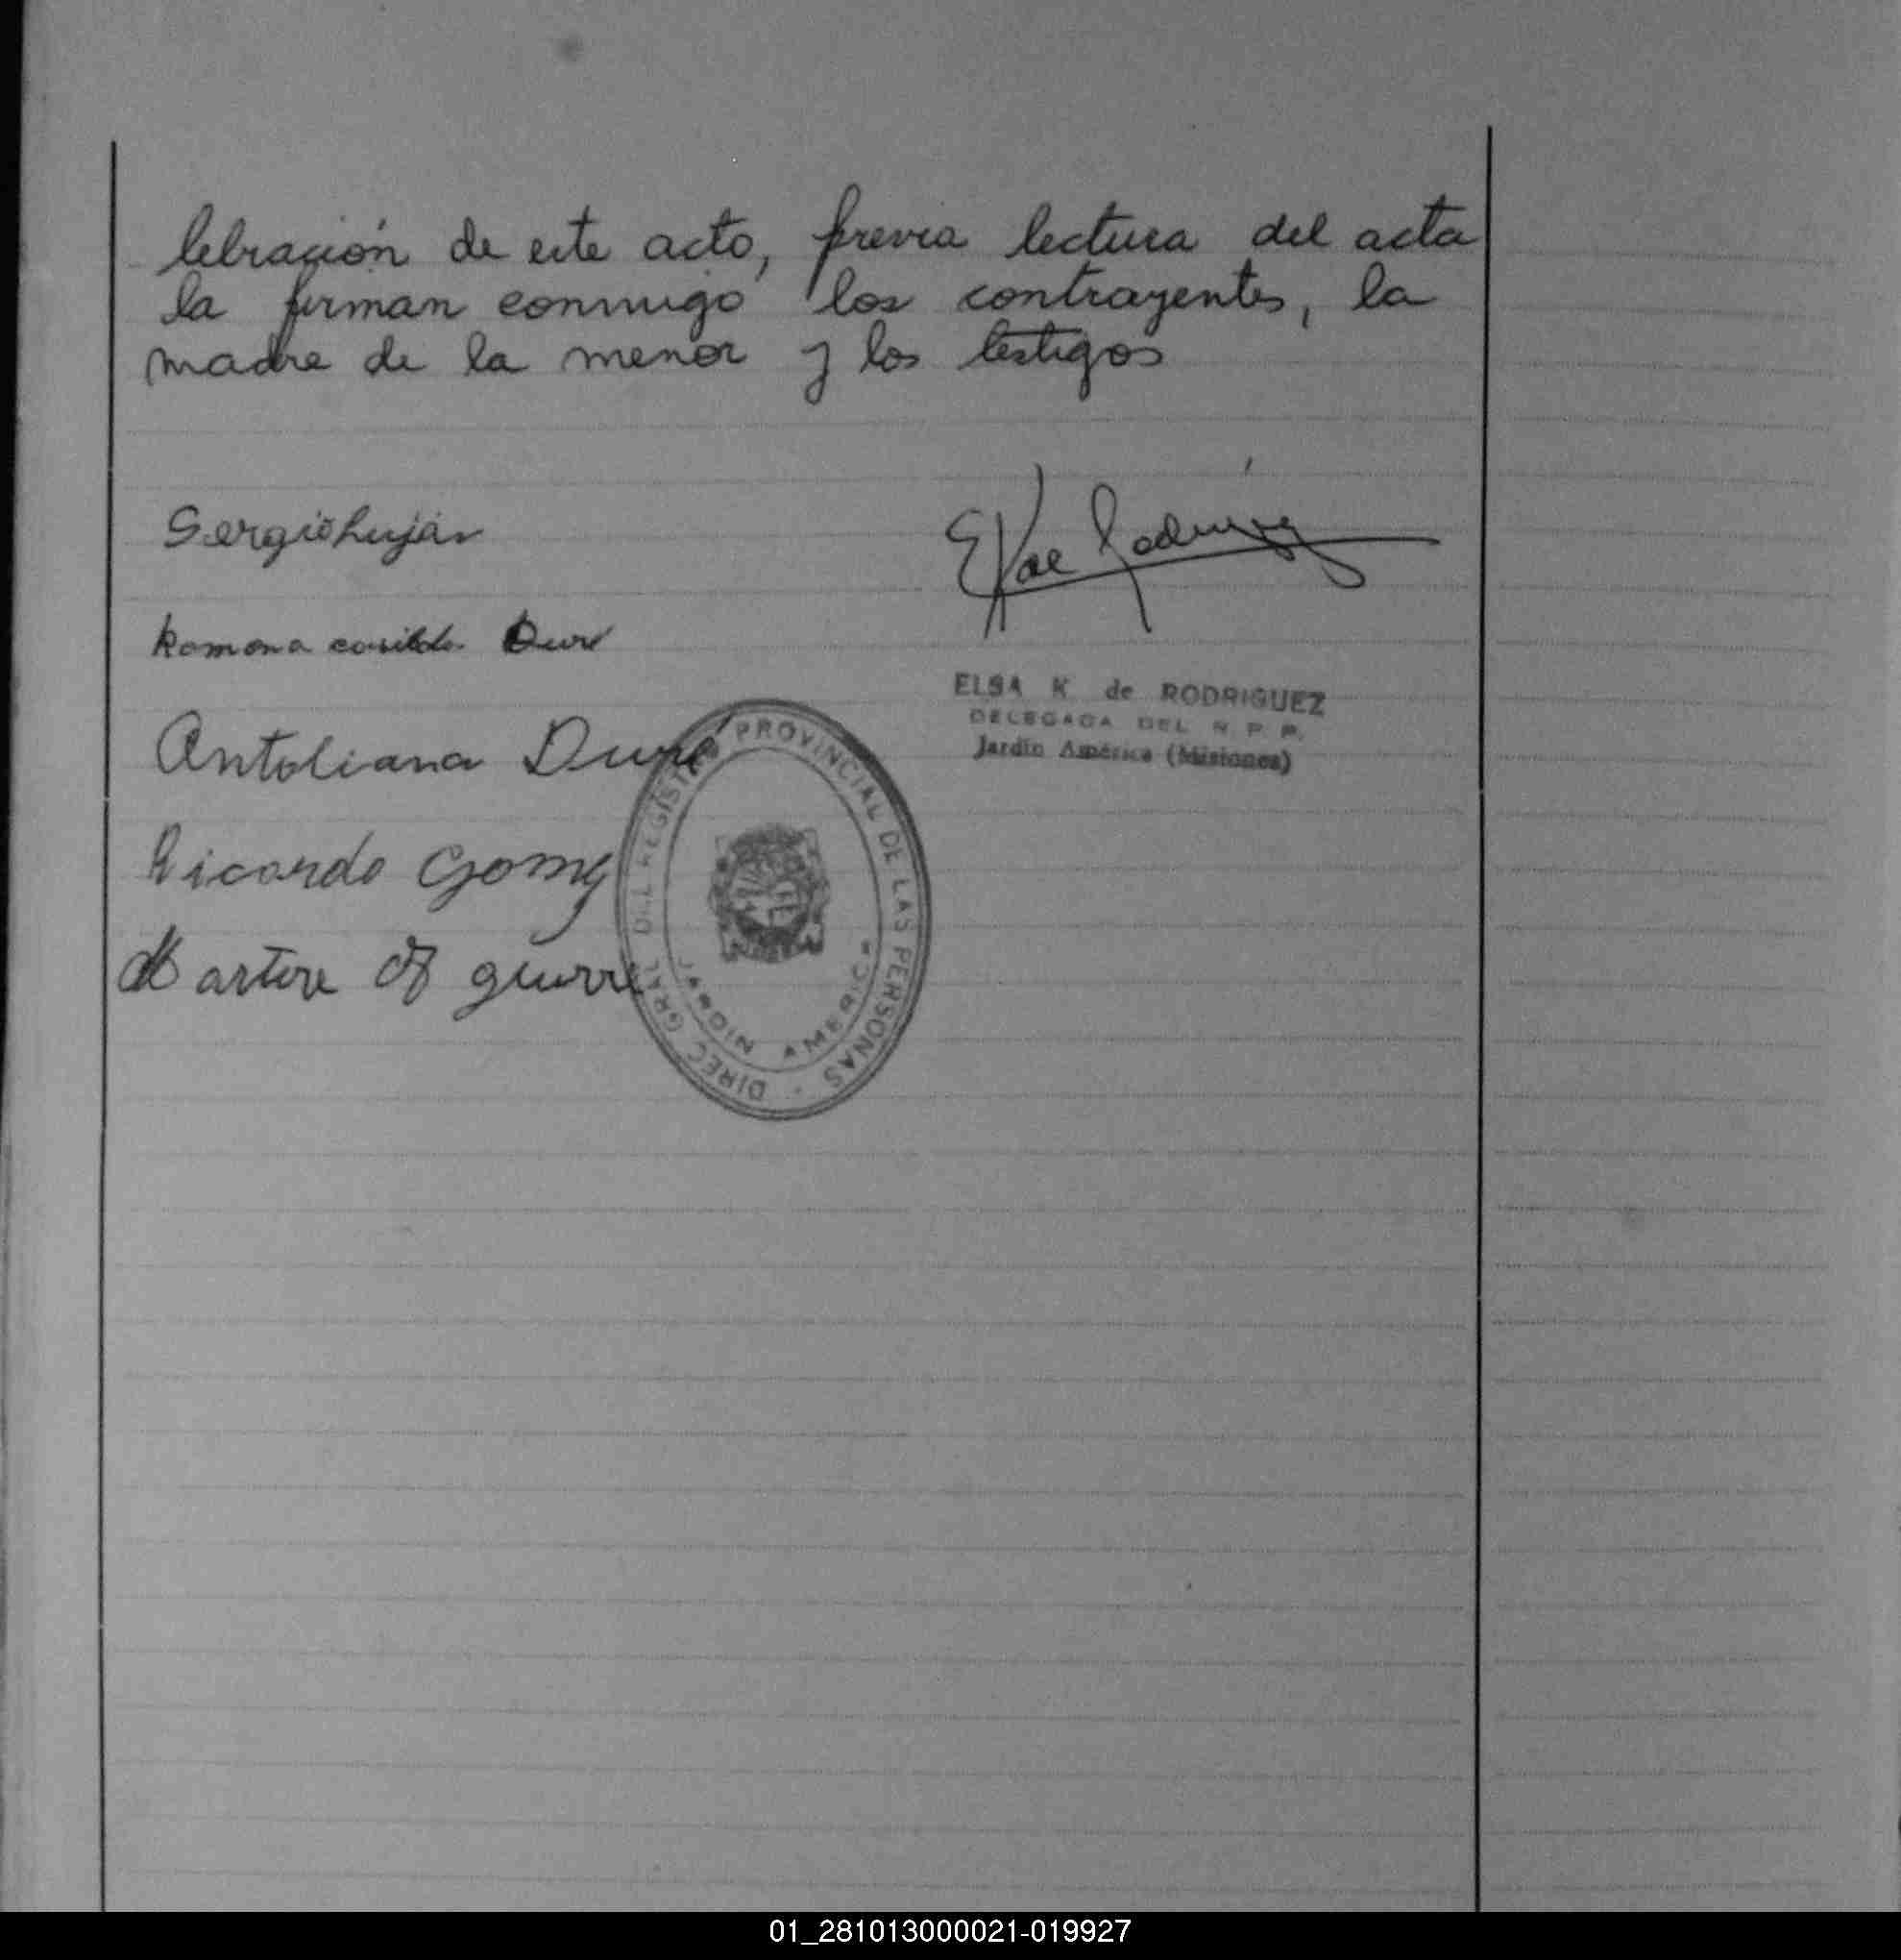 lebración de este acto, previa lectura del acta
la firman conmigo los contrayentes, la
madre de la menor y los testigos
Sergio Luján
EK de Rodríguez
Ramona casilda Duré
ELSA K de RODRIGUEZ
DELEGADA DEL R. P. P.
Jardín América (Misiones)
Antoliana Duré
Ricardo Gomez
DIREC GRAL DEL REGISTRO PROVINCIAL DE LAS PERSONAS
JARDIN AMERICA
01_281013000021-019927